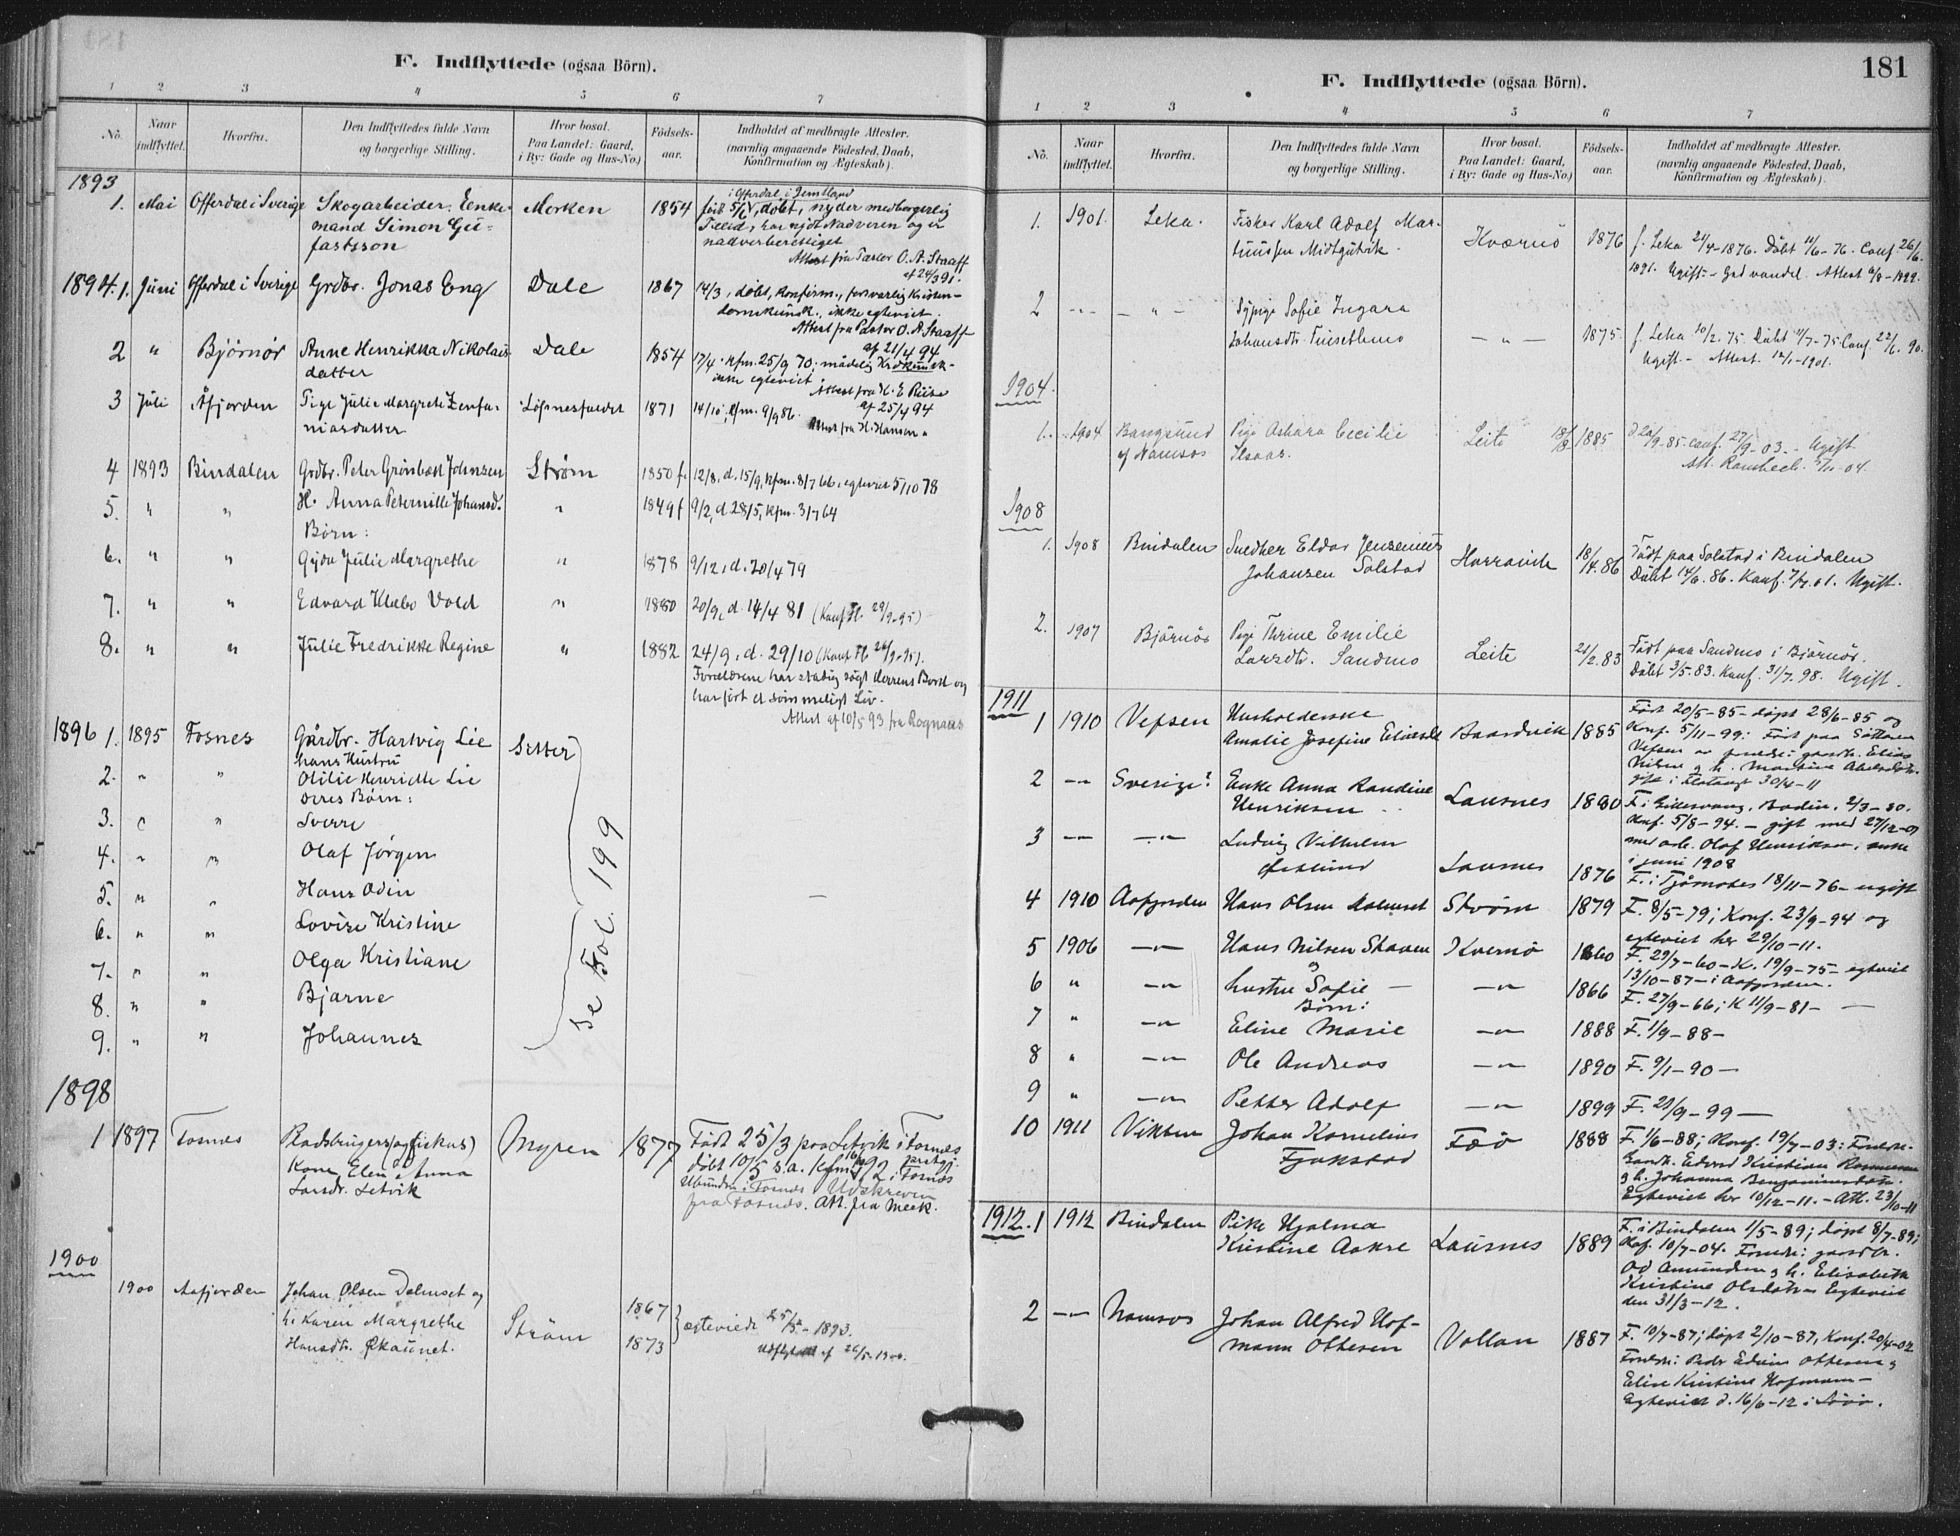 F. Indflyttede (ogsaa Börn).
1 2 3 4 5 6 7
No. Naar indflyttet. Hvorfra. Den Indflyttedes fulde Navn og borgerlige Stilling. Hvor bosat. Paa Landet: Gaard, i By: Gade og Hus-No.) Födsels-aar. Indholdet af medbragte Attester. (navnlig angaaende Födested, Daab, Konfirmation og Ægteskab).
1893
i Offerdal i Jemtland
1. Mai Offerdal i Sverige Skogarbeider, Enke- Morken 1854 född 5/6, döbt, nyder medborgerlig
mand Simon Gu- Tillid, har nydt Nadveren og er
fastsson nadverberettiget
Attest fra Pastor O. A. Staaff
af 24/3 91.
1894. 1. Juni Offerdal i Sverige Grdbr. Jonas Eng Dale 1867 14/3, döbt, konfirm., forsvarlig Kristen-
domskundsk., ikke egteviet.
Attest fra Pastor O. A. Staaff
af 21/4 94
2 " Bjørnør Anne Henrikka Nikolais- Dale 1854 17/4. kfm. 25/9 70; maadelig
datter ikke egteviet Attest fra H. E. Riise
af 25/4 94
3 Juli Åfjorden Pige Julie Margrete Zenfa- Løfsnesfaldet 1871 14/10, kfm. 9/9 86.
niasdatter Attest fra H. Hansen "
4 1893 Bindalen Grdbr. Peter Grønbæk Johnsen Strøm 1850 f. 12/8, d. 15/9, kfm. 8/7 66, egteviet 5/10 78
5. " " H. Anna Peternille Johansd. " 1849 f 9/2, d 28/5, kfm. 3/7 64
Börn:
6. " " Gyda Julie Margrethe " 1878 9/12, d. 20/4 79
7. " " Edvard Klæbo Vold " 1880 20/9, d. 14/4 81 (Konf. Fl. 29/9-95)
8. " " Julie Fredrikke Regine " 1882 24/9, d. 29/10 (Konf. Fl. 26/9-95).
Forældrene har stadig søgt Herrens Bord og
har ført et sømmeligt Liv.
Attest af 10/5 93 fra Rognaas
1896 1. 1895 Fosnes Gårdbr. Hartvig Lie Setter
hans Hustru
2. " " Otilie Henriette Lie
deres Børn:
3. " " Sverre
4. " " Olaf Jørgen
5. " " Hans Odin
6. " " Lovise Kristine
7. " " Olga Kristiane
8. " " Bjarne
9. " " Johannes
se Fol. 199
1898
1 1897 Fosnes Pladsbrugers (og fiskers) Myren 1877 Født 25/3 paa Setvik i Fosnes prstgj.
Kone Elen Anna døbt 10/5 s.a. Kfm. 92 i Fosnes
Larsdr. Setvik Ubunden i Fosnes Udskreven
fra Fosnes. Att. fra Meek.
1900
1900 Aafjorden Johan Olsen Dalmset og Strøm 1867 egteviede 25/5-1893.
h. Karen Margrethe
Hansdt. Økaunet. 1873 Udflyttatt af 26/5-1900.
F. Indflyttede (ogsaa Börn). 181
1 2 3 4 5 6 7
No. Naar indflyttet. Hvorfra. Den Indflyttedes fulde Navn og borgerlige Stilling. Hvor bosat. Paa Landet: Gaard, i By: Gade og Hus-No.) Födsels-aar. Indholdet af medbragte Attester. (navnlig angaaende Födested, Daab, Konfirmation og Ægteskab).
1. 1901. Leka. Fisker Karl Adolf Mar- Kværnö 1876 f. Leka 21/4-1876. Döbt 11/6-76. Conf. 26/6.
tinussen Midtgutvik. 1891. Ugift - God vandel. Attest 6/8-1899.
2 -"- -"- Sypige Sofie Ingara
Johansdt. -"- 1875. f. Leka 10/2.75. Döbt 11/7-75 Conf. 22/6. 90.
Ugift - Attest. 12/1-1901.
1904.
1. 1904 Bangsund Pige Cecilie Leite 1885 20/9-85. conf. 27/9-03. - Ugift
af Namsos Isaks. Att. 5/11-04.
1908
1. 1908 Bindalen Snedker Eldor Jensenius Horsvik 18/4.86 Födt paa Solstad i Bindalen
Johansen Solstad Döbt 14/6.86. Konf. 7/7.01. Ugift.
2. 1907 Bjørnör Pige Thrine Emilie Leite 21/2.83 Födt paa Sandmo i Bjørnör.
Larsdtr. Sandmo Döbt 3/5.83. Konf. 31/7.98. Ugift.
1911
1 1910 Vefsen Husholderske Baardvik 1885 Født 20/5-85 - døpt 28/6-85 og
Amalie Josefine Eliasdt. Konf. 5/11-99: Født paa
Vefsen av foreldre: gaardbr. Elias
Nilsen og h. Martine
gift i Flatanger 30/4-11
2 -"- Sverige? Enke Anna Randine Lausnes 1880 F. i Bodin, 2/3-80.
Henriksen Konf. 5/8-94. - gift med 27/12-07
med arb. Olaf Henriksen, enke
i juni 1908
3 -"- -"- Ludvig Vilhelm Lausnes 1876 F. i 18/11-76 - ugift
Østlund
4 1910 Aafjorden Hans Olsen Dalmset Strøm 1879 F. 8/5-79; Konf. 23/9-94 og
egteviet her 29/10-11.
5 1906 -"- Hans Nilsen Skaven Kvernö 1860 F. 29/7-60 - K. 19/9-75 - egteviet
og 13/10-87 - i Aafjorden.
6 " -"- hustru Sofie - -"- 1866 F. 27/9-66; K 11/9-81 -
Børn:
7 " -"- Eline Marie -"- 1888 F. 1/9-88 -
8 " -"- Ole Andreas -"- 1890 F. 9/1-90 -
9 " -"- Petter Adolf -"- 1899 F. 21/9-99 -
10 1911 Vikten Johan Kornelius Faø 1888 F. 1/6-88; Konf. 19/7-03: Foreldre:
Fjukstad Gaardbr. Edvard Kristian Rasmussen
og h. Johanna Benjaminsdatr.
Egteviet her 10/12-11. - Att. 23/10-11
1912. 1 1912 Bindalen Pike Hjalma Lausnes 1889 F. i Bindalen 1/5-89; døpt 8/7-89;
Kristine Aakre Konf. 10/7-04. Foreldr: gaardbr.
Od Amundsen og h. Elisabeth
Kristine Olsdatter Egteviet
den 31/3-12.
2 -"- Namsos Johan Alfred Hof- Vollan 1887 F. 10/7-87; døpt 2/10-87, Konf. 20/4-02
mann Ottesen Foreldr: Peder Edvin Ottesen og
Elise Kristine Hofmann -
Egteviet d. 16/6-12 i